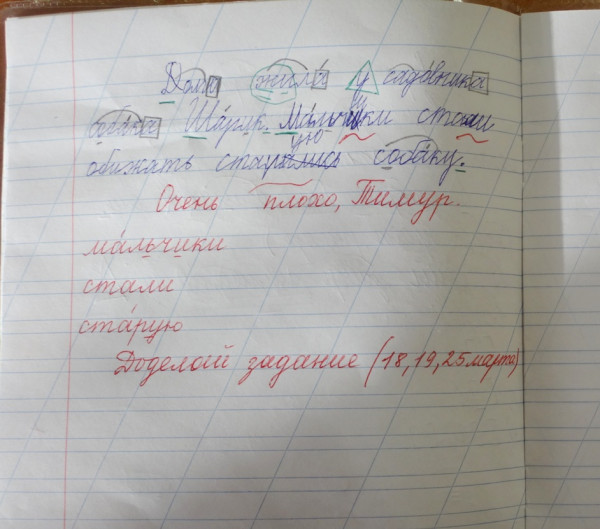 Долго жила у садовника
собака Шарик. Мальчики стали
обижать старую собаку.
Очень плохо, Тимур.
ма́льчики
стали
ста́рую
Доделай задание (18, 19, 25 марта)